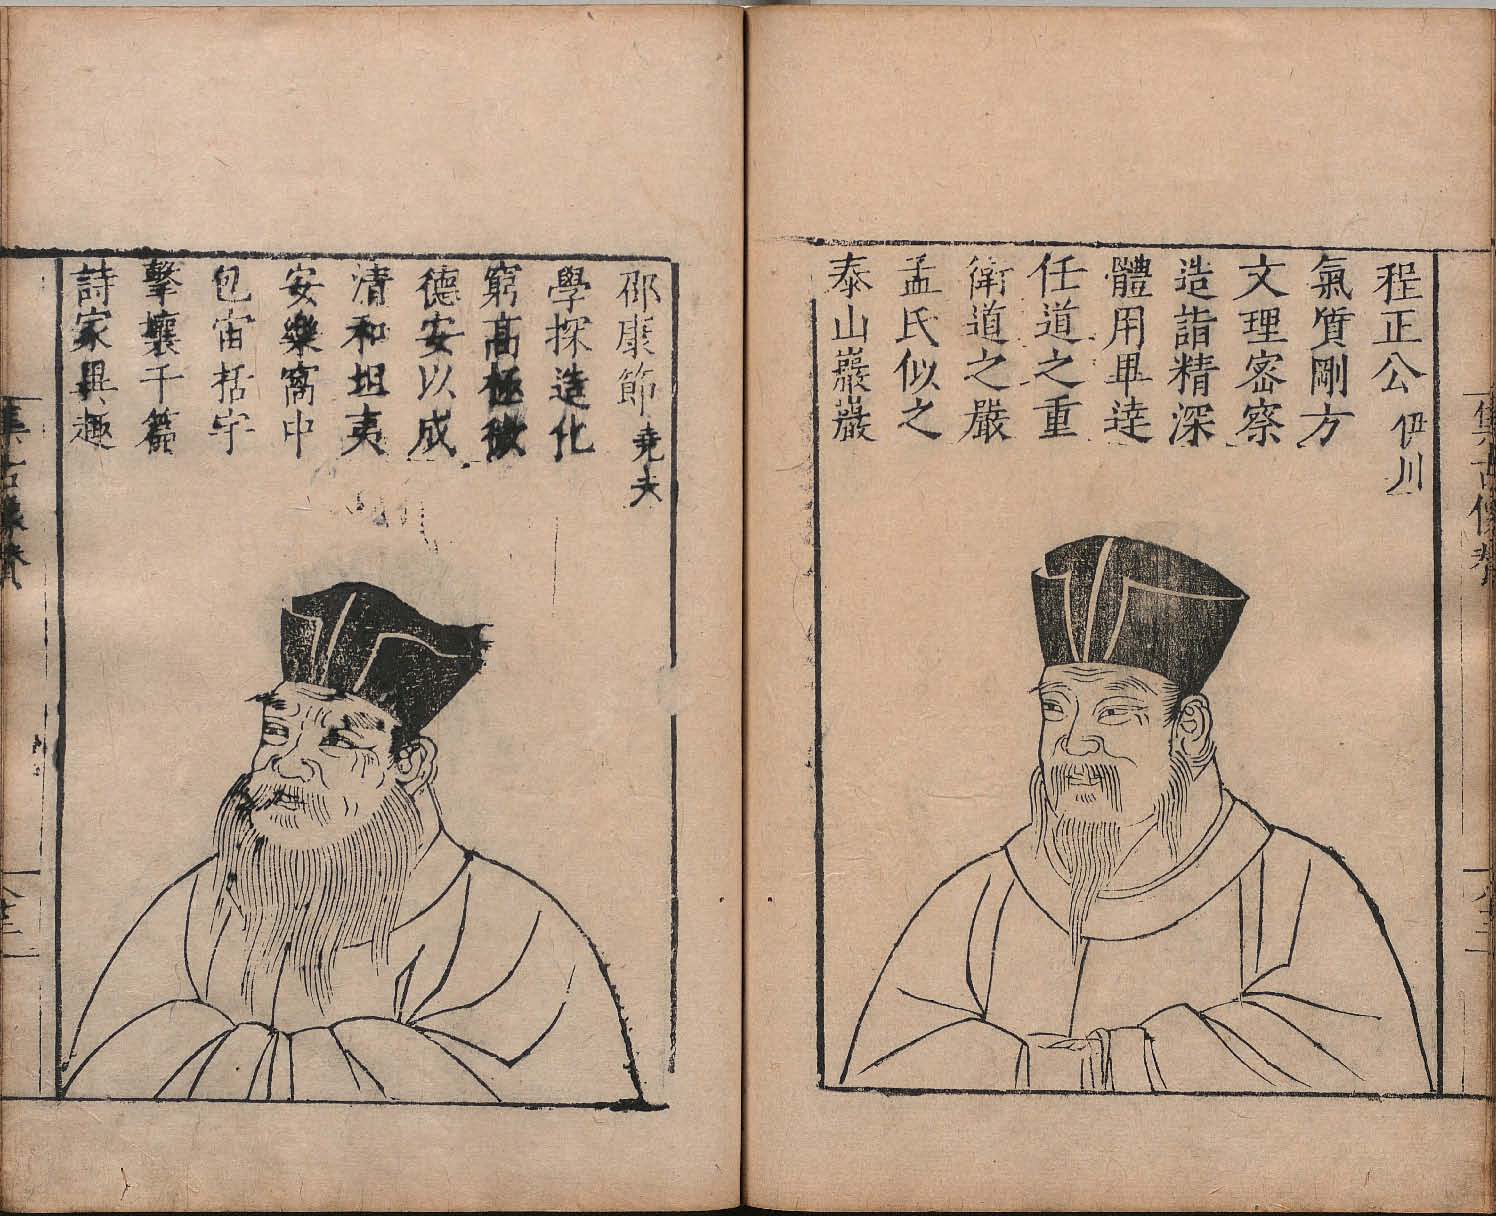 程正公 伊川
氣質剛方
文理密察
造詣精深
體用畢達
任道之重
衛道之嚴
孟氏似之
泰山巖巖
集古像贊
邵康節 堯夫
學探造化
窮高極微
德安以成
清和坦夷
安樂窩中
包宙括宇
擊壤千篇
詩家異趣
集古像贊